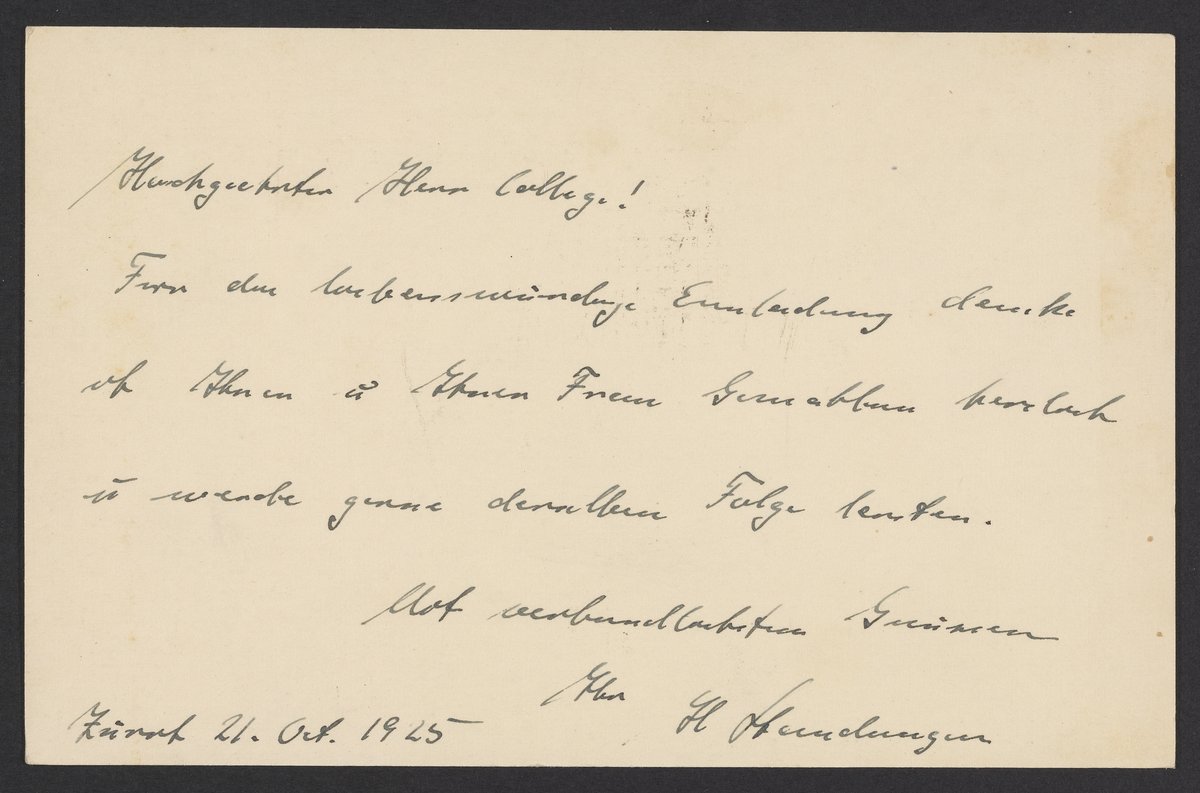 Hochgeehrter Herr College!
Für die liebenswürdige Einladung danke
ich Ihnen u Ihrer Frau Gemahlin herzlich
u werde gerne derselben Folge leisten.
Mit verbindlichsten Grüssen
Ihr
Zürich 21. Oct. 1925 H Staudinger